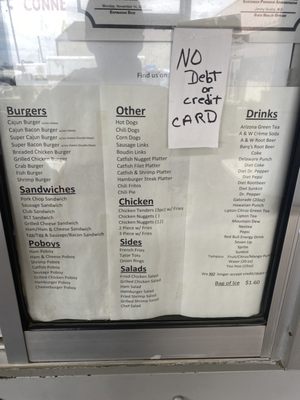 CONNE
Monday, November 14,
NO
Debt
or
credit
CARD
Find us on
Burgers
Cajun Burger
Cajun Bacon Burger
Super Cajun Burger
Super Bacon Burger
Breaded Chicken Burger
Grilled Chicken Burger
Crab Burger
Fish Burger
Shrimp Burger
Sandwiches
Pork Chop Sandwich
Sausage Sandwich
Club Sandwich
BLT Sandwich
Grilled Cheese Sandwich
Ham/Ham & Cheese Sandwich
Egg/Egg & Sausage/Bacon Sandwich
Poboys
Ham Poboy
Ham & Cheese Poboy
Shrimp Poboy
Catfish Poboy
Sausage Poboy
Grilled Chicken Poboy
Hamburger Poboy
Cheeseburger Poboy
Other
Hot Dogs
Chili Dogs
Corn Dogs
Sausage Links
Boudin Links
Catfish Nugget Platter
Catfish Filet Platter
Catfish & Shrimp Platter
Hamburger Steak Platter
Chili Fritos
Chili Pie
Chicken
Chicken Tenders (3pc) w/ Fries
Chicken Nuggets
Chicken Nuggets
2 Piece w/ Fries
3 Piece w/ Fries
Sides
French Fries
Tator Tots
Onion Rings
Salads
Fried Chicken Salad
Grilled Chicken Salad
Ham Salad
Hamburger Salad
Fried Shrimp Salad
Grilled Shrimp Salad
Chef Salad
Drinks
Arizona Green Tea
A & W Crème Soda
A & W Root Beer
Barq's Root Beer
Coke
Delaware Punch
Diet Coke
Diet Dr. Pepper
Diet Pepsi
Diet Rootbeer
Diet Sunkist
Dr. Pepper
Gatorade
Hawaiian Punch
Lipton Citrus Green Tea
Lipton Tea
Mountain Dew
Nestea
Pepsi
Red Bull Energy Drink
Seven Up
Sprite
Sunkist
Water
Tea
Bag of Ice $1.60